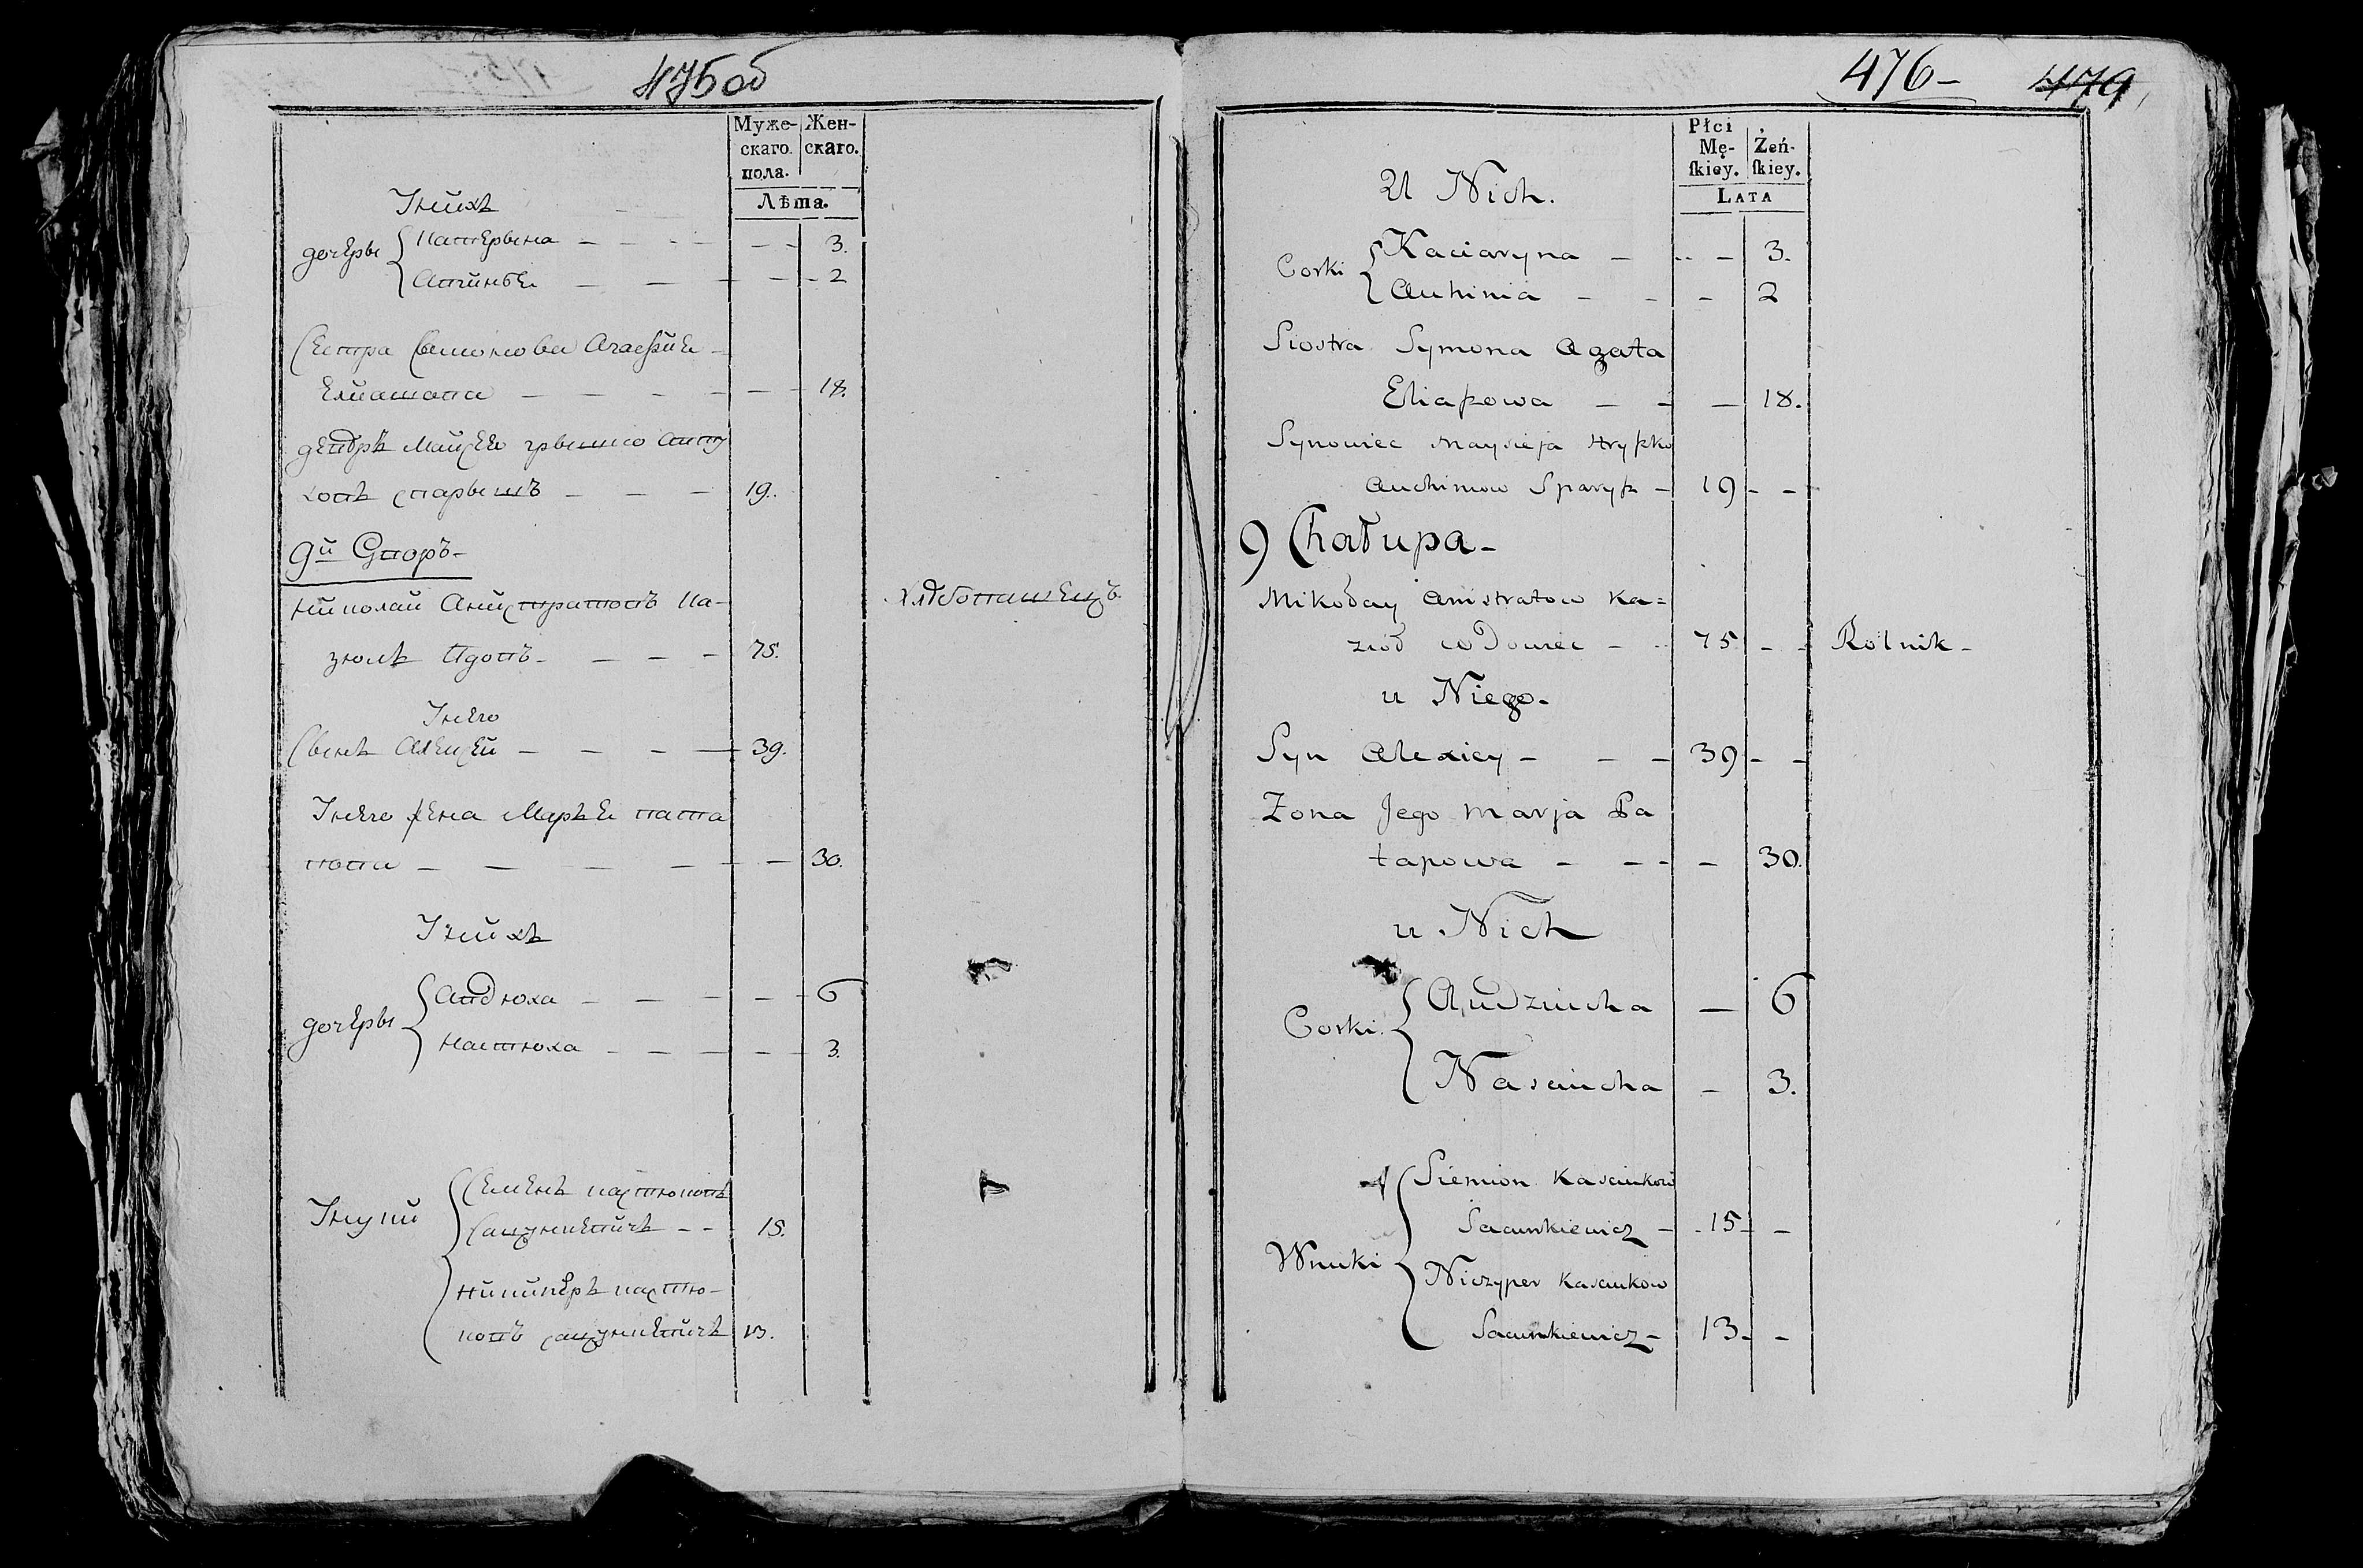 475об
Муже- Жен-
скаго скаго.
пола.
Лѣта.
Унихъ
дочеры Катерына - - - - 3.
Агинья - - - - 2
Сестра Сымонова Агафия
Елиашова - - - - 18.
Грышко
Спарышъ - - - 19.
9й Дворъ -
Николай Анистратовъ Ка-
зюлъ Вдовъ - - - 75.
хлѣбопашецъ
Унего
Сынъ Алексей - - - 39.
Унего жена Марья Пота
пова - - - - 30.
Унихъ
дочеры Авдюха - - - - 6
Настюха - - - - 3.
Внуки Семенъ Кастюковъ
Сацункевичъ - - 15.
Ничиперъ Кастю-
ковъ Сацункевичъ 13.
476- 479
Płci
Mę- Żeń-
ſkiey. ſkiey.
LATA
U Nich.
Corki Kaciaryna - - - 3.
Auhinia - - - 2
Siostra Symona Agata
Eliaszowa - - - 18.
Synowiec Maysieja Hryszko
Auchimow Sparysz - 19 - -
9 Chałupa -
Mikołay Anistratow Ka=
ziół wdowiec - - 75 - - Rolnik -
u Niego -
Syn Alexiey - - - 39 - -
Zona Jego Marja Pa
tapowa - - - - 30.
u Nich
Corki. Audziucha - 6
Nasciucha - 3.
Wnuki Siemion Kasciukow
Sacunkiewicz - - 15 - -
Niczyper Kasciukow
Sacunkiewicz - 13 - -